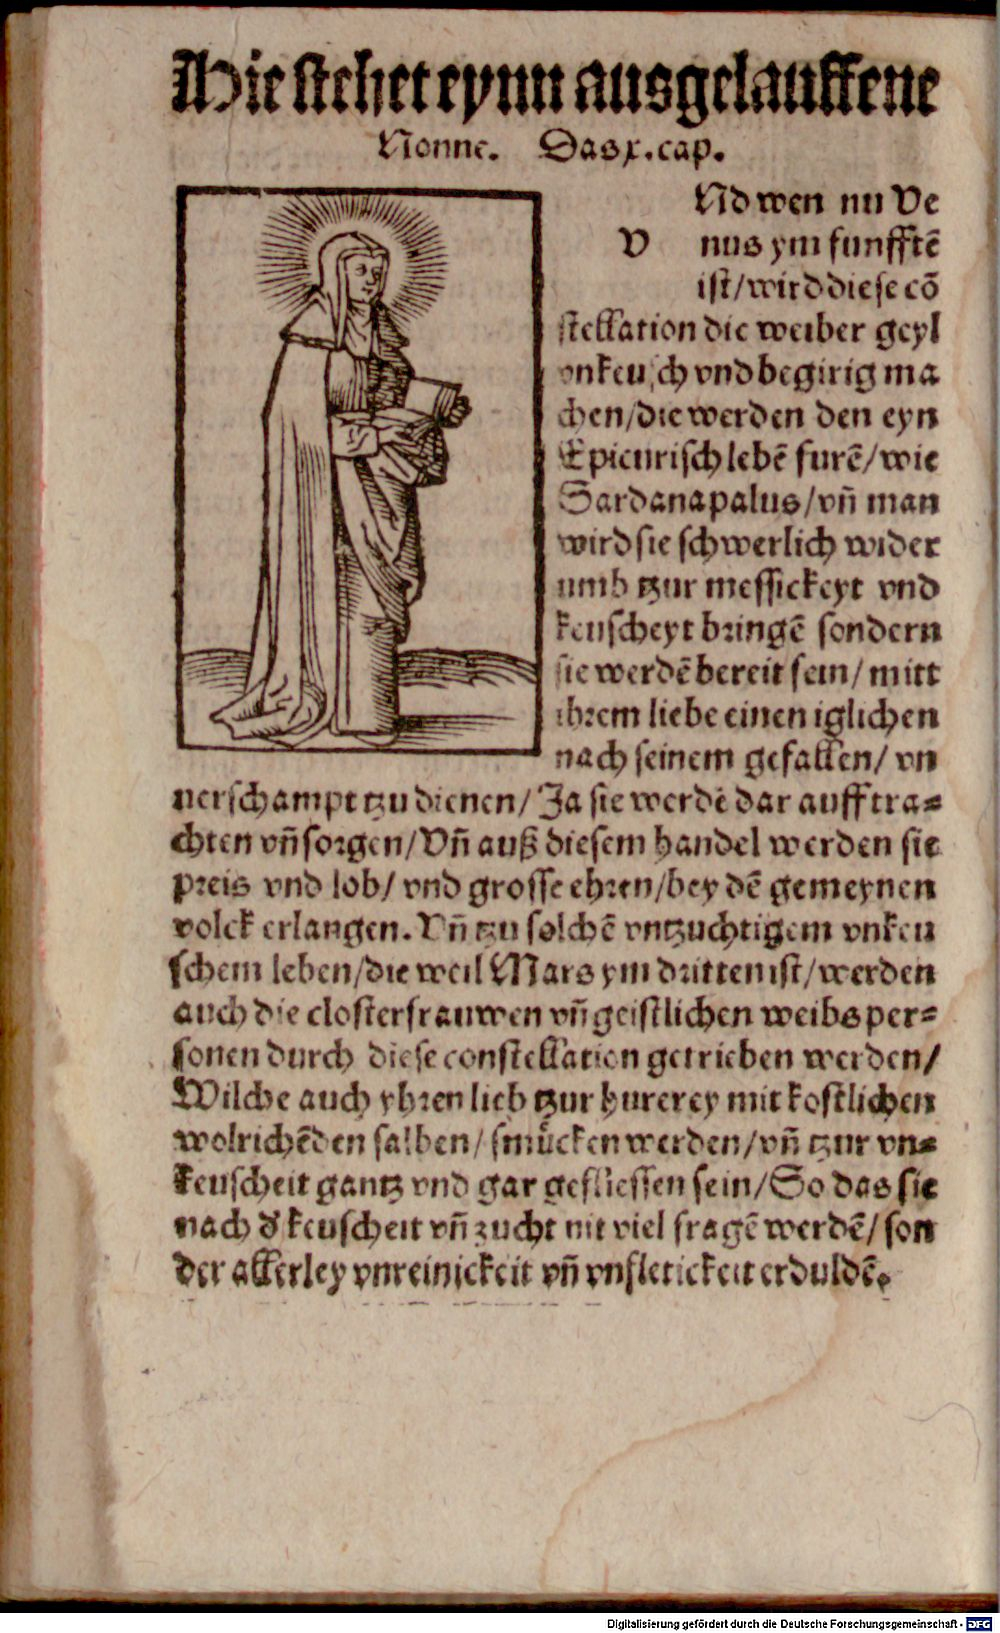 Hie stehet eynn ausgelauffene
Nonne. Das x. cap.
V Nd wen nu Ve
nus ym funfftē
ist/wird diese cō
stellation die weiber geyl
vnkeusch vnd begirig ma
chen/die werden den eyn
Epicurisch lebē furē/wie
Sardanapalus/vn̄ man
wird sie schwerlich wider
umb tzur messickeyt vnd
keuscheyt bringē sondern
sie werdē bereit sein/mitt
ihrem liebe einen iglichen
nach seinem gefallen/vn
uerschampt tzu dienen/Ja sie werdē dar auff tra⸗
chten vn̄ sorgen/Vn̄ auß diesem handel werden sie
preis vnd lob/vnd grosse ehren/bey dē gemeynen
volck erlangen. Vn̄ tzu solchē vntzuchtigem vnkeu
schem leben/die weil Mars ym dritten ist/werden
auch die closterfrauwen vn̄ geistlichen weibs per⸗
sonen durch diese constellation getrieben werden/
Wilche auch yhren lieb tzur hurerey mit kostlichen
wolrichēden salben/smücken werden/vn̄ tzur vn⸗
keuscheit gantz vnd gar gefliessen sein/So das sie
nach d' keuscheit vn̄ zucht nit viel fragē werdē/son
der allerley vnreinickeit vn̄ vnfletickeit erduldē.
Digitalisierung gefördert durch die Deutsche Forschungsgemeinschaft - DFG